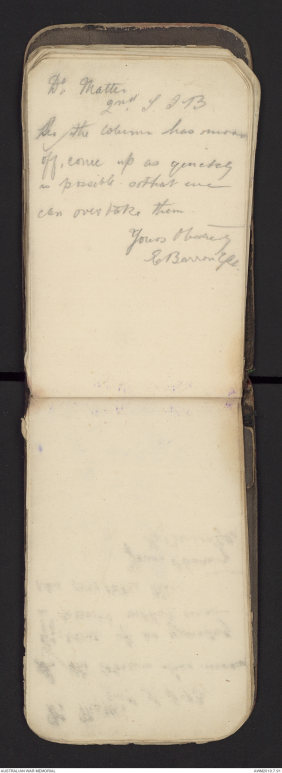 Dr. Matter
2nd S I B
the column has moved
off, come up as quickly
as possible so that we
can overtake them
Yours
E Barron
AUSTRALIAN WAR MEMORIAL